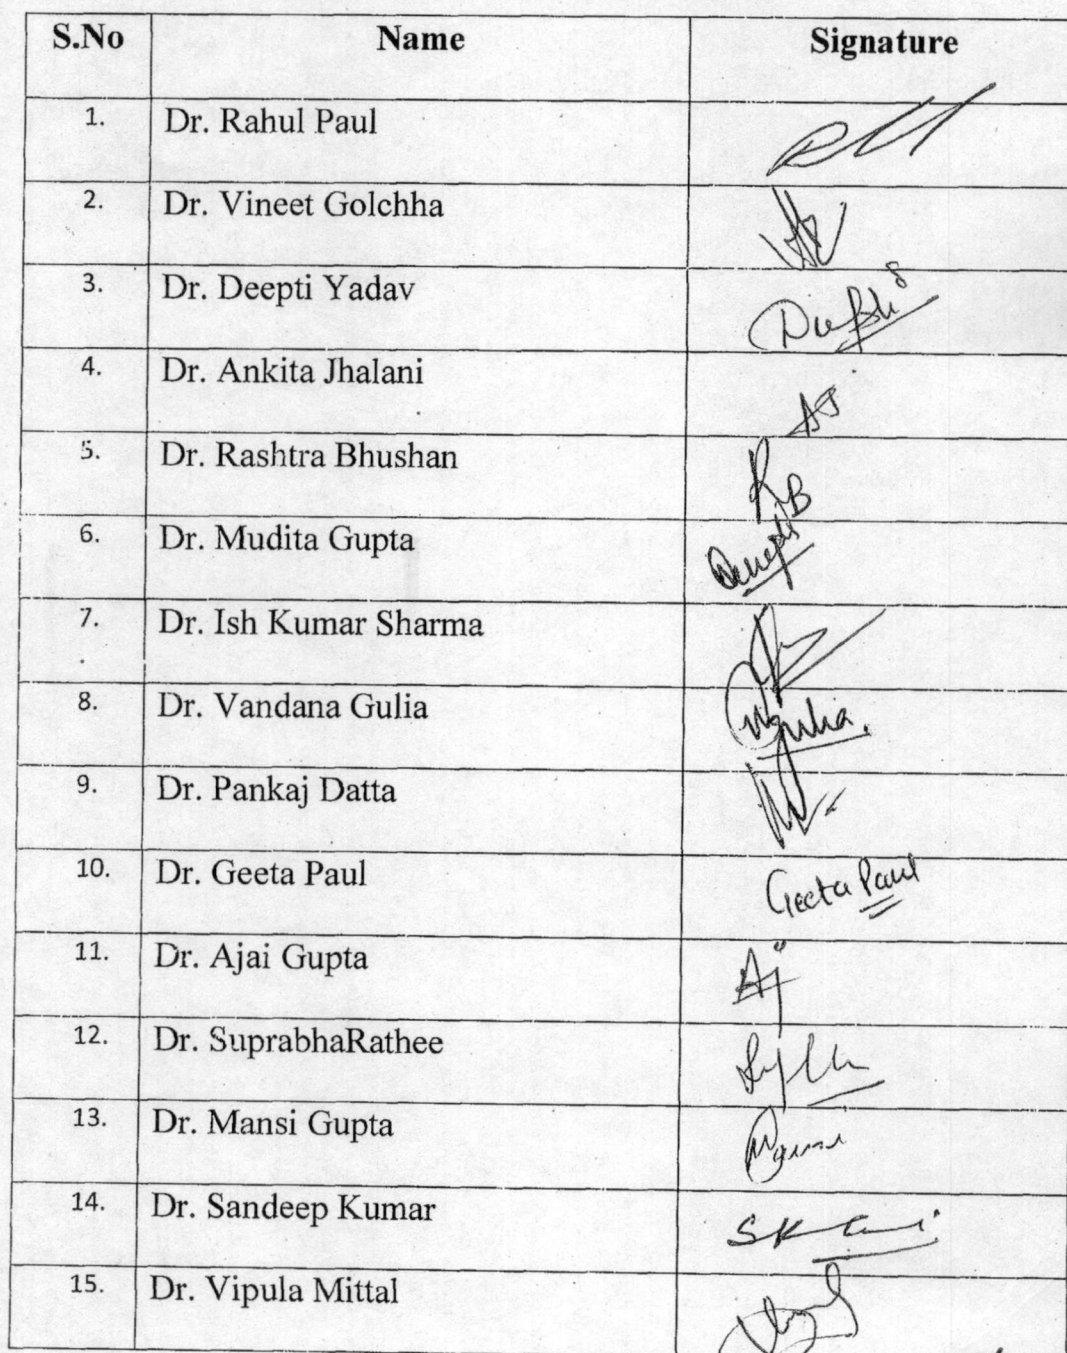 S.No Name Signature
1. Dr. Rahul Paul
2. Dr. Vineet Golchha
3. Dr. Deepti Yadav
4. Dr. Ankita Jhalani AJ
5. Dr. Rashtra Bhushan RB
6. Dr. Mudita Gupta
7. Dr. Ish Kumar Sharma
8. Dr. Vandana Gulia
9. Dr. Pankaj Datta
10. Dr. Geeta Paul Geeta Paul
11. Dr. Ajai Gupta Aj
12. Dr. SuprabhaRathee
13. Dr. Mansi Gupta
14. Dr. Sandeep Kumar
15. Dr. Vipula Mittal